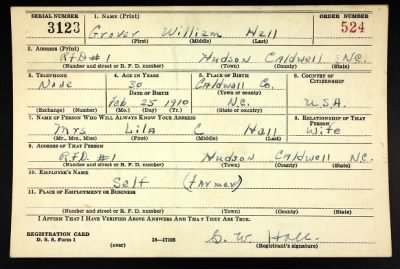 SERIAL NUMBER 1. NAME (Print) ORDER NUMBER
3123 Grover William Hall 524
(First) (Middle) (Last)
2. ADDRESS (Print)
R.F.D #1 Hudson Caldwell N.C.
(Number and street or R. F. D. number) (Town) (County) (State)
3. TELEPHONE 4. AGE IN YEARS 5. PLACE OF BIRTH 6. COUNTRY OF CITIZENSHIP
None 30 Caldwell Co.
DATE OF BIRTH (Town or county)
Feb 25 1910 N.C. U.S.A.
(Exchange) (Number) (Mo.) (Day) (Yr.) (State or country)
7. NAME OF PERSON WHO WILL ALWAYS KNOW YOUR ADDRESS 8. RELATIONSHIP OF THAT PERSON
Mrs Lila C Hall Wife
(Mr., Mrs., Miss) (First) (Middle) (Last)
9. ADDRESS OF THAT PERSON
R.F.D. #1 Hudson Caldwell N.C.
(Number and street or R. F. D. number) (Town) (County) (State)
10. EMPLOYER'S NAME
Self (Farmer)
11. PLACE OF EMPLOYMENT OR BUSINESS
(Number and street or R. F. D. number) (Town) (County) (State)
I AFFIRM THAT I HAVE VERIFIED ABOVE ANSWERS AND THAT THEY ARE TRUE.
REGISTRATION CARD
D. S. S. Form 1 (over) 16—17105 G. W. Hall
(Registrant's signature)